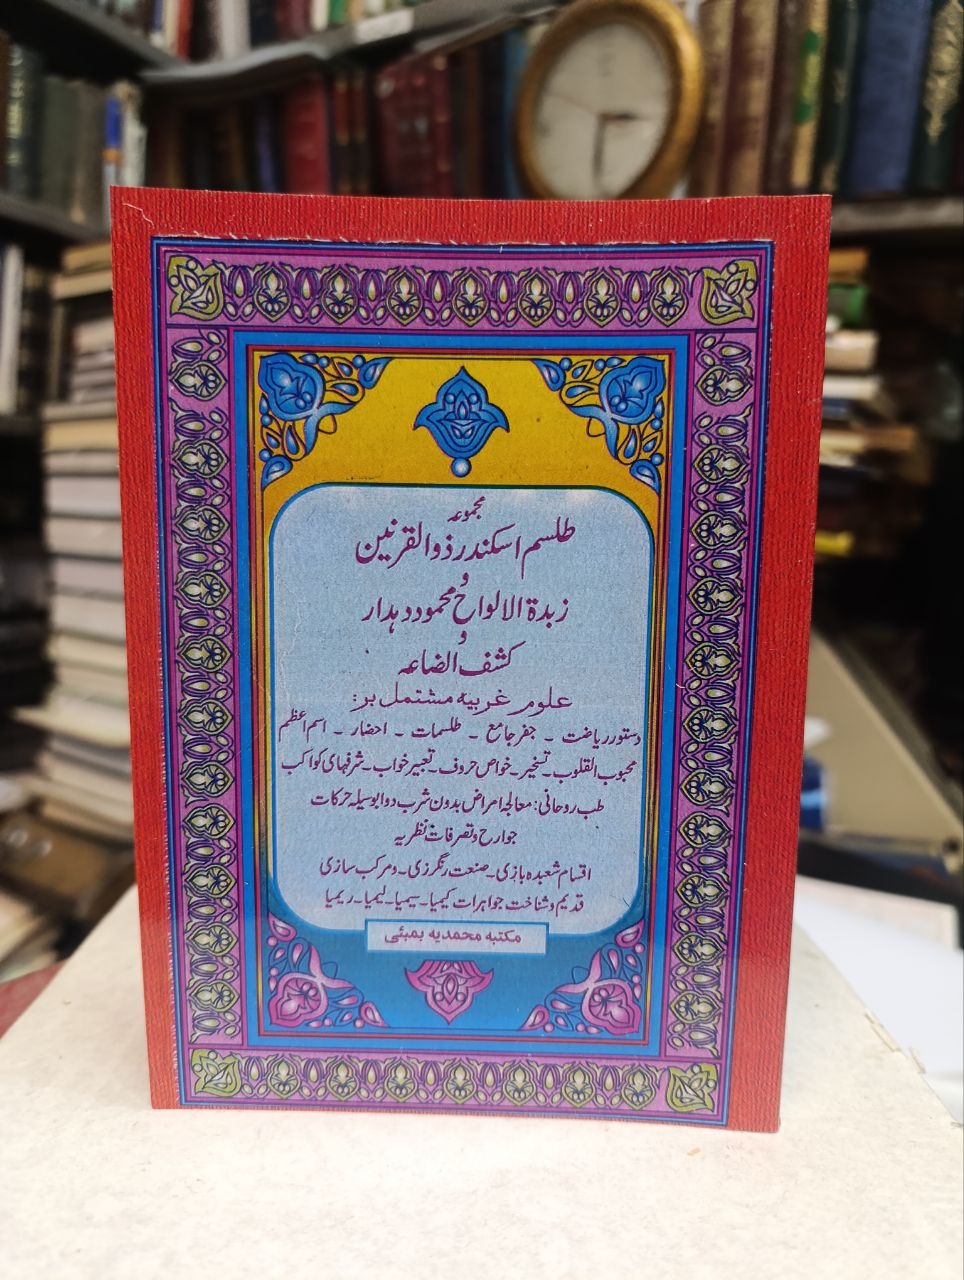 مجموعه
طلسم اسکندر ذوالقرنین
و
زبدة الالواح محمود دهدار
و
کشف الضاعه
علوم غریبه مشتمل بر:
دستور ریاضت - جفر جامع - طلسمات - احضار - اسم اعظم
محبوب القلوب - تسخیر - خواص حروف - تعبیر خواب - شرفهای کواکب
طب روحانی: معالجه امراض بدون شرب دوا بوسیله حرکات
جوارح و تصرفات نظریه
اقسام شعبده بازی - صنعت رنگرزی - و مرکب سازی
قدیم و شناخت جواهرات کیمیا - سیمیا - لیمیا - ریمیا
مکتبه محمدیه بمبئی